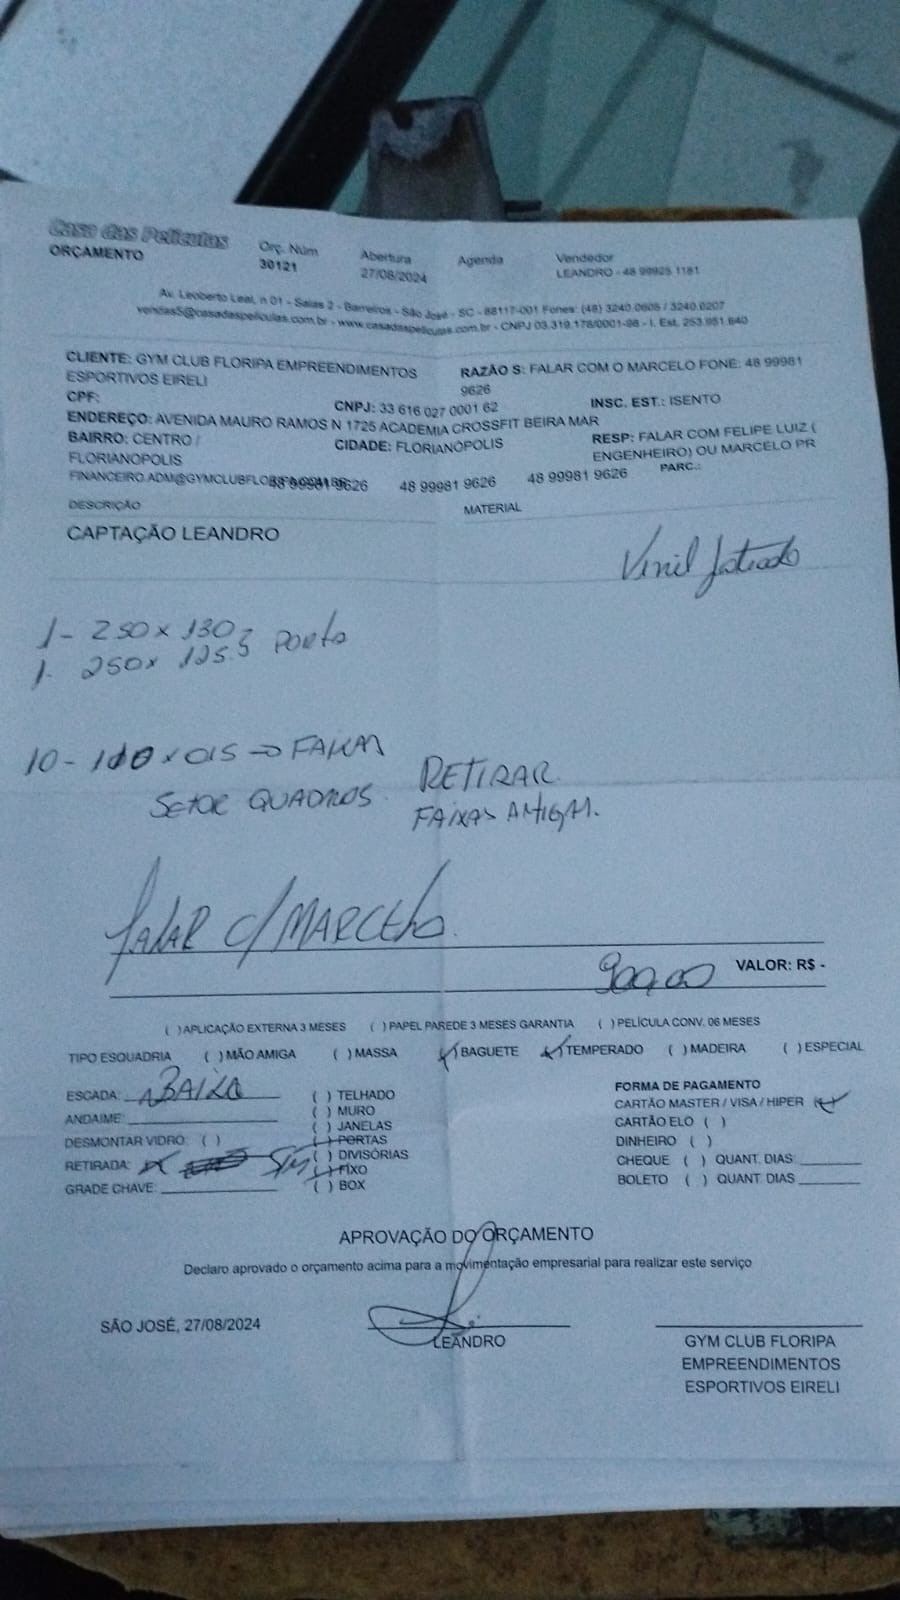 Casa das Películas
ORÇAMENTO
Orç. Núm
30121
Abertura
27/08/2024
Agenda
Vendedor
LEANDRO - 48 99925 1181
Av. Leoberto Leal, n 01 - Salas 2 - Barreiros - São José - SC - 88117-001 Fones: (48) 3240.0605 / 3240.0207
vendas5@casadaspeliculas.com.br - www.casadaspeliculas.com.br - CNPJ 03.319.178/0001-98 - I. Est. 253.951.640
CLIENTE: GYM CLUB FLORIPA EMPREENDIMENTOS
ESPORTIVOS EIRELI
RAZÃO S: FALAR COM O MARCELO FONE: 48 99981
9626
CPF:
CNPJ: 33 616 027 0001 62
INSC. EST.: ISENTO
ENDEREÇO: AVENIDA MAURO RAMOS N 1725 ACADEMIA CROSSFIT BEIRA MAR
BAIRRO: CENTRO /
FLORIANOPOLIS
CIDADE: FLORIANÓPOLIS
RESP: FALAR COM FELIPE LUIZ (
ENGENHEIRO) OU MARCELO PR
FINANCEIRO.ADM@GYMCLUBFLO 48 99981 9626 48 99981 9626 48 99981 9626 PARC.:
DESCRIÇÃO
MATERIAL
CAPTAÇÃO LEANDRO
Vinil Jateado
1- 250 x 130
1- 250 x 125.5 PORTA
10- 100 x 015 → FAIXAS
SETOR QUADROS.
RETIRAR
FAIXAS ANTIGAS.
FALAR C/ MARCELO.
900,00 VALOR: R$ -
( ) APLICAÇÃO EXTERNA 3 MESES ( ) PAPEL PAREDE 3 MESES GARANTIA ( ) PELÍCULA CONV. 06 MESES
TIPO ESQUADRIA ( ) MÃO AMIGA ( ) MASSA (x) BAGUETE (x) TEMPERADO ( ) MADEIRA ( ) ESPECIAL
ESCADA: BAIXA
ANDAIME:
DESMONTAR VIDRO: ( )
RETIRADA: x SIM
GRADE CHAVE:
( ) TELHADO
( ) MURO
( ) JANELAS
( ) PORTAS
( ) DIVISÓRIAS
( ) FIXO
( ) BOX
FORMA DE PAGAMENTO
CARTÃO MASTER / VISA / HIPER (x)
CARTÃO ELO ( )
DINHEIRO ( )
CHEQUE ( ) QUANT. DIAS:
BOLETO ( ) QUANT. DIAS
APROVAÇÃO DO ORÇAMENTO
Declaro aprovado o orçamento acima para a movimentação empresarial para realizar este serviço
SÃO JOSÉ, 27/08/2024
LEANDRO
GYM CLUB FLORIPA
EMPREENDIMENTOS
ESPORTIVOS EIRELI